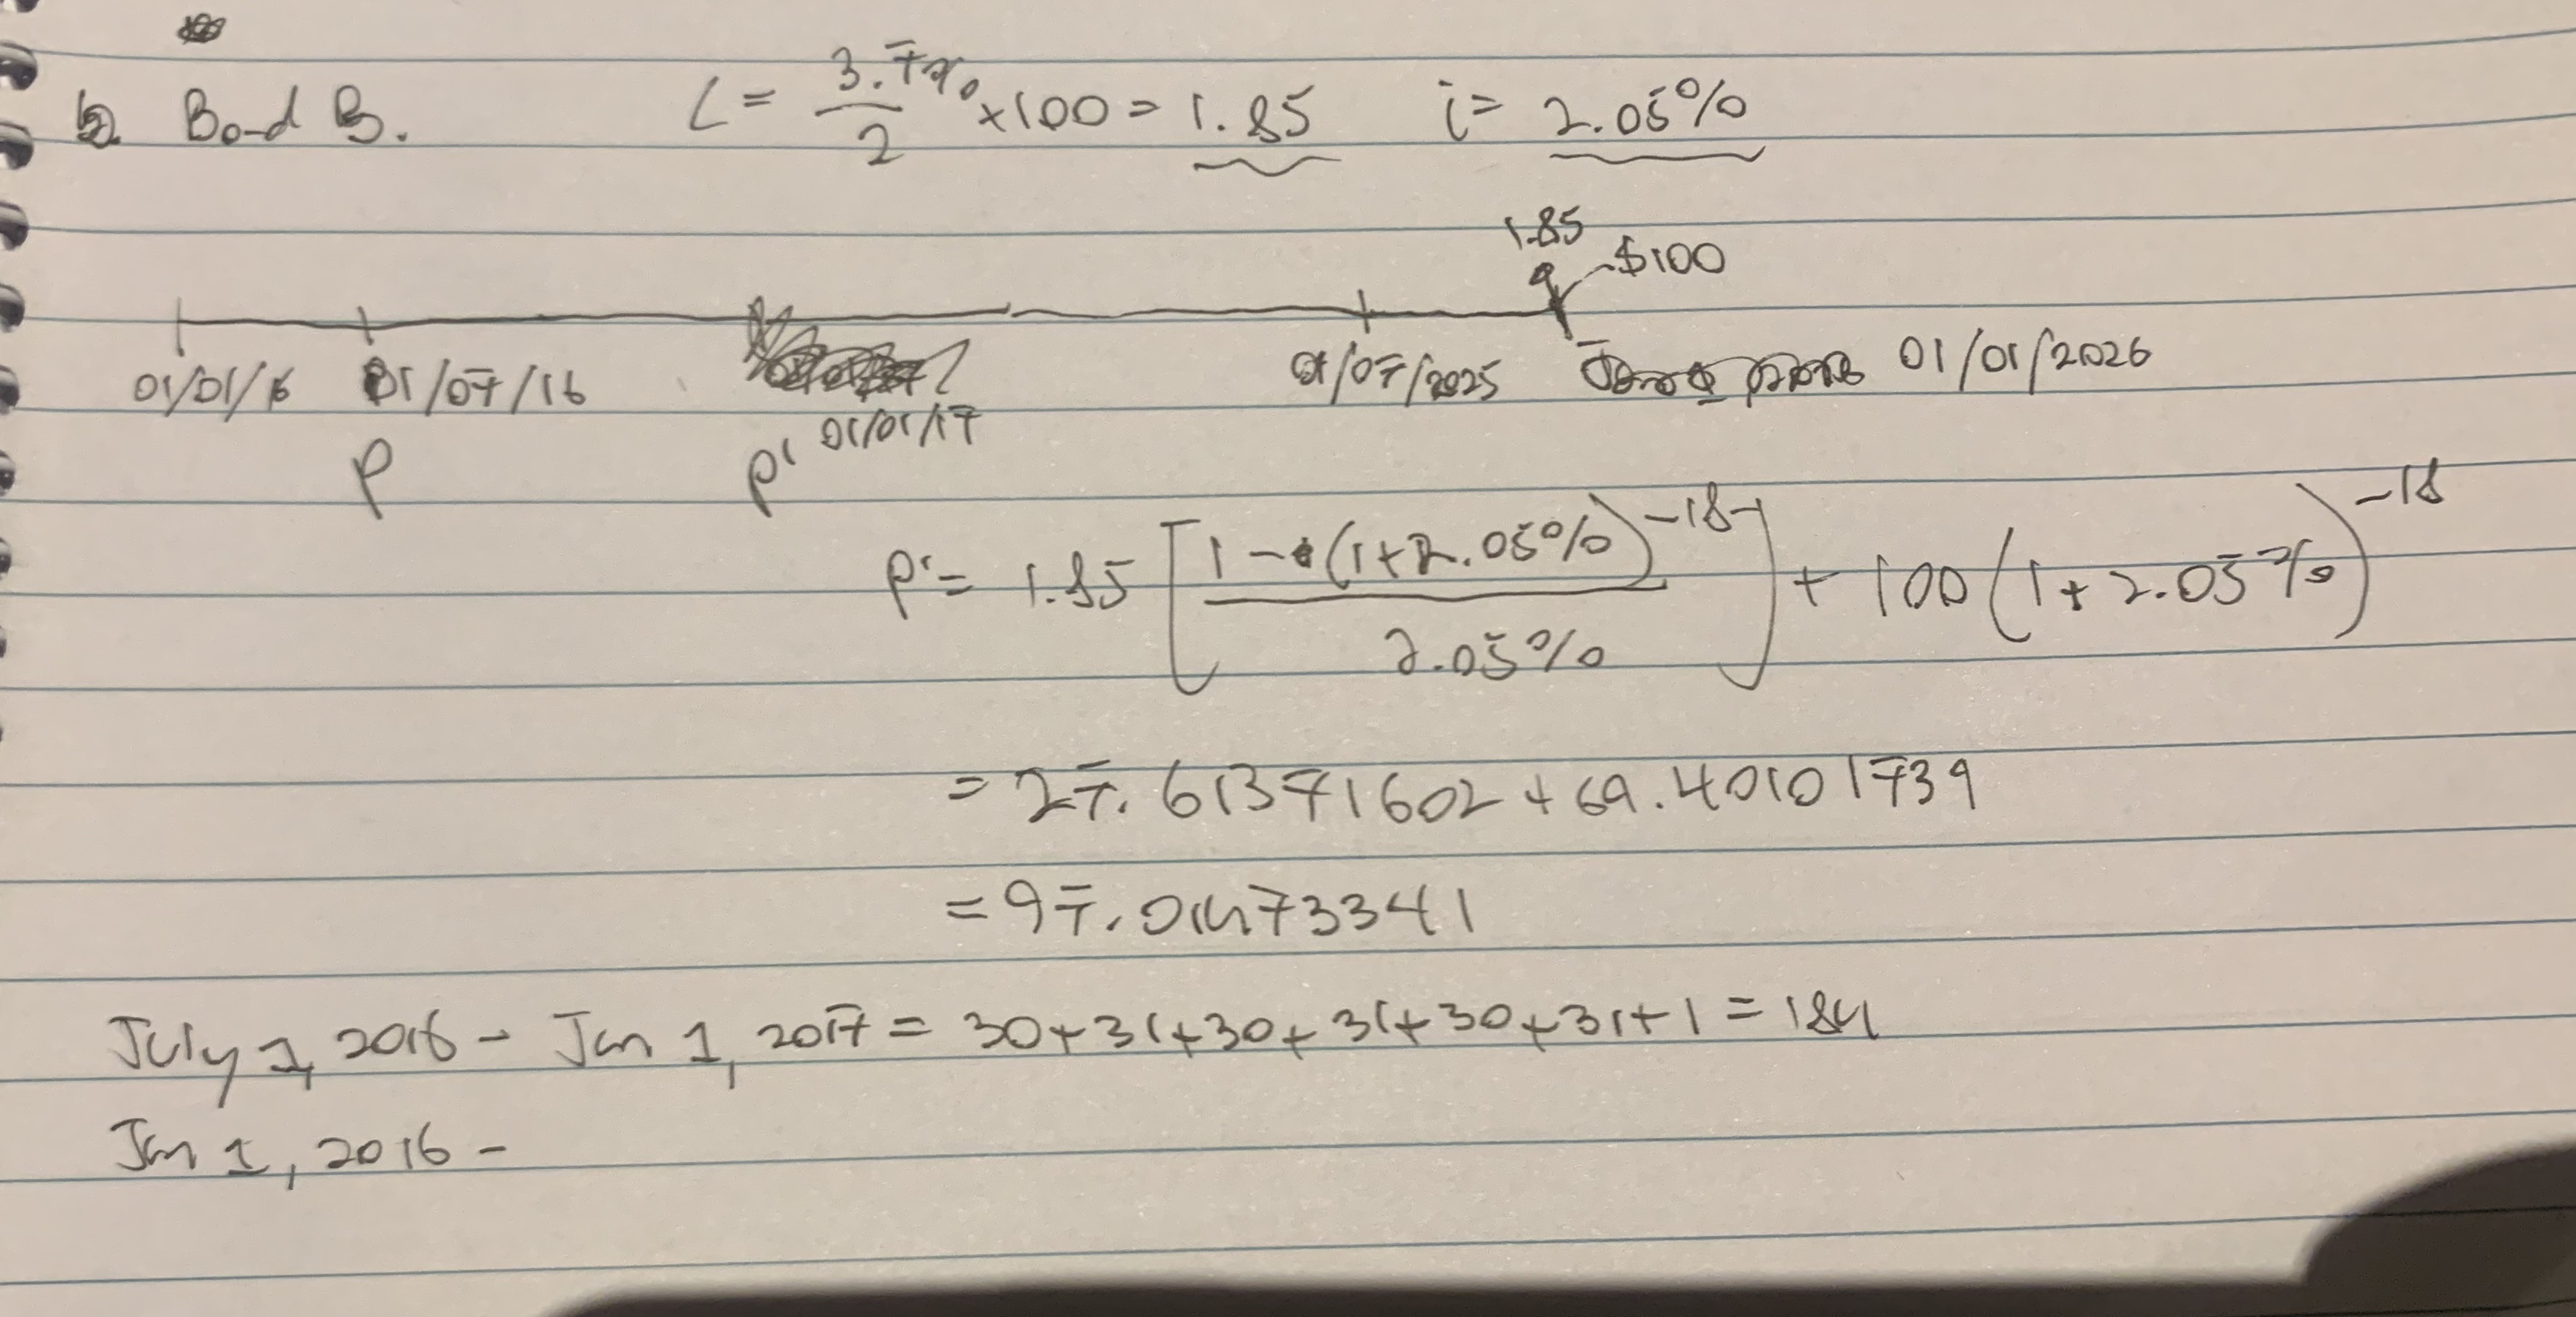 b. Bond B. C = 3.7%/2 × 100 = 1.85 i = 2.05%
1.85
$100
01/01/16 01/07/16 01/07/2025 01/01/2026
P P' 01/01/17
P' = 1.85 [1 - (1 + 2.05%)^-18 / 2.05%] + 100 (1 + 2.05%)^-18
= 27.61371602 + 69.40101739
= 97.01473341
July 1, 2016 - Jan 1, 2017 = 30 + 31 + 30 + 31 + 30 + 31 + 1 = 184
Jan 1, 2016 -